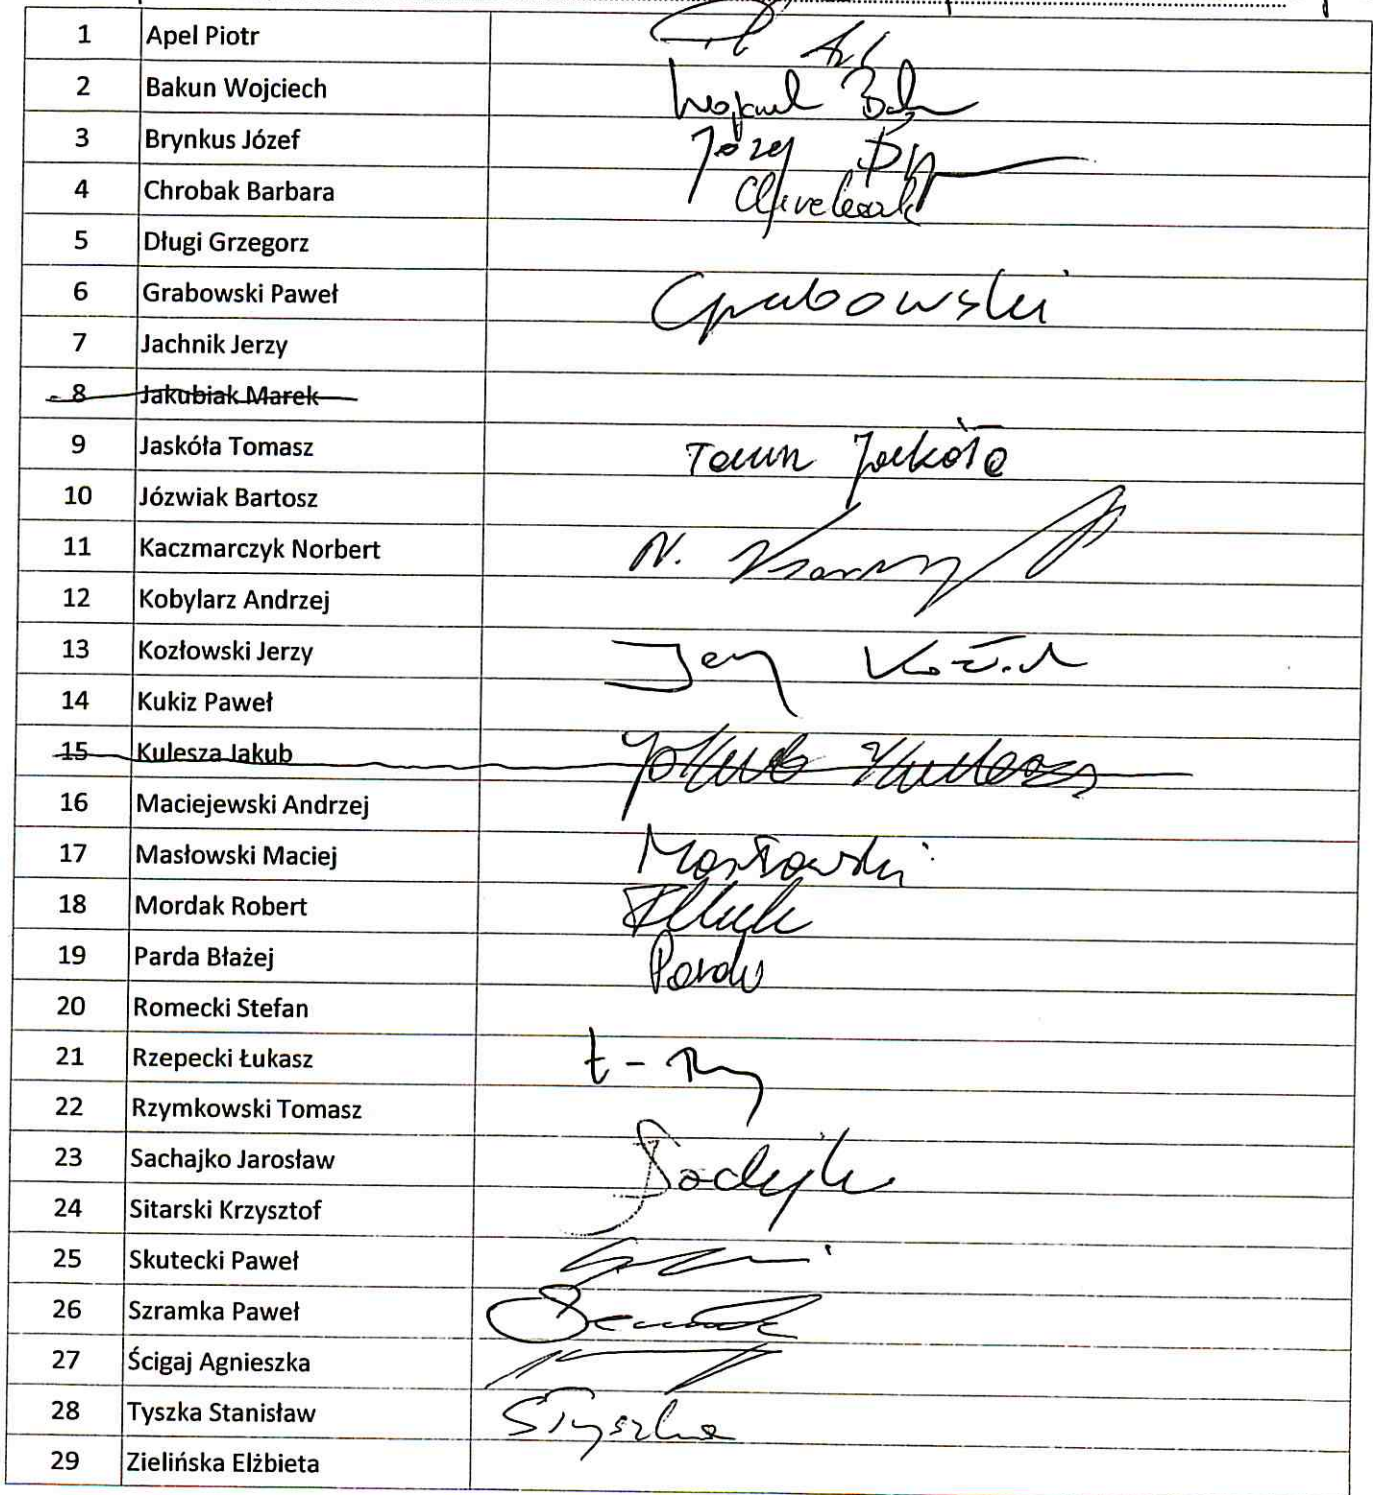 1 Apel Piotr
2 Bakun Wojciech Wojciech
3 Brynkus Józef Józef
4 Chrobak Barbara
5 Długi Grzegorz
6 Grabowski Paweł Grabowski
7 Jachnik Jerzy
8 Jakubiak Marek
9 Jaskóła Tomasz Tomasz Jaskóła
10 Józwiak Bartosz
11 Kaczmarczyk Norbert N.
12 Kobylarz Andrzej
13 Kozłowski Jerzy Jerzy
14 Kukiz Paweł
15 Kulesza Jakub Jakub Kulesza
16 Maciejewski Andrzej
17 Masłowski Maciej Masłowski
18 Mordak Robert
19 Parda Błażej Parda
20 Romecki Stefan
21 Rzepecki Łukasz
22 Rzymkowski Tomasz
23 Sachajko Jarosław
24 Sitarski Krzysztof
25 Skutecki Paweł
26 Szramka Paweł
27 Ścigaj Agnieszka
28 Tyszka Stanisław STyszka
29 Zielińska Elżbieta